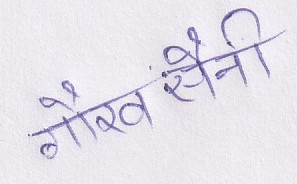 गौरव सैनी